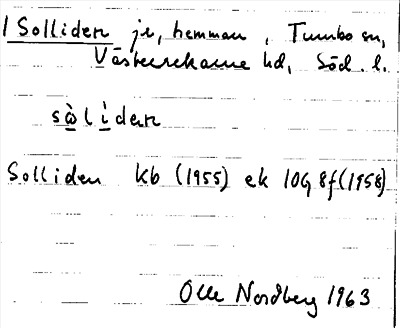 / Solliden je, hemman, Tumbo sn,
Västerrekarne hd, Söd. l.
sòlìden
Solliden kb (1955) ek 10G 8f (1958)
Olle Nordberg 1963